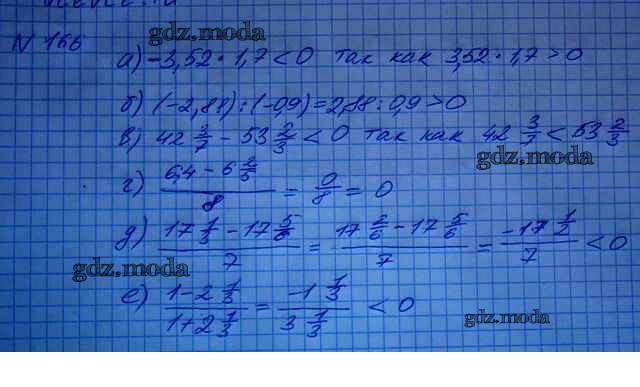 N 166
gdz.moda
а) -3,52 · 1,7 < 0 так как 3,52 · 1,7 > 0
б) (-2,88) : (-0,9) = 2,88 : 0,9 > 0
в) 42 3/7 - 53 2/3 < 0 так как 42 3/7 < 53 2/3
gdz.moda
г) (6,4 - 6 2/5)/8 = 0/8 = 0
д) (17 1/3 - 17 5/6)/7 = (17 2/6 - 17 5/6)/7 = (-17 1/2)/7 < 0
gdz.moda
е) (1 - 2 1/3)/(1 + 2 1/3) = (-1 1/3)/(3 1/3) < 0
gdz.moda